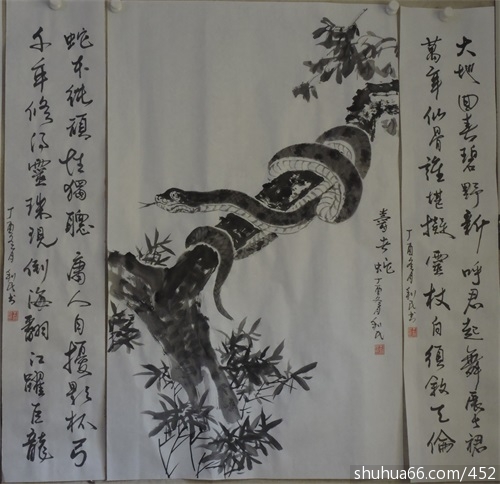 大地回春碧野新 呼君起舞展长裙
萬年仙骨誰堪擬 靈杖自須敘天倫
丁酉冬月 利民书
丁酉冬月 利民
蛇本純頑性獨聰 庸人自擾影杯弓
千年修得靈珠現 倒海翻江躍巨龍
丁酉冬月 利民书
shuhua66.com/452